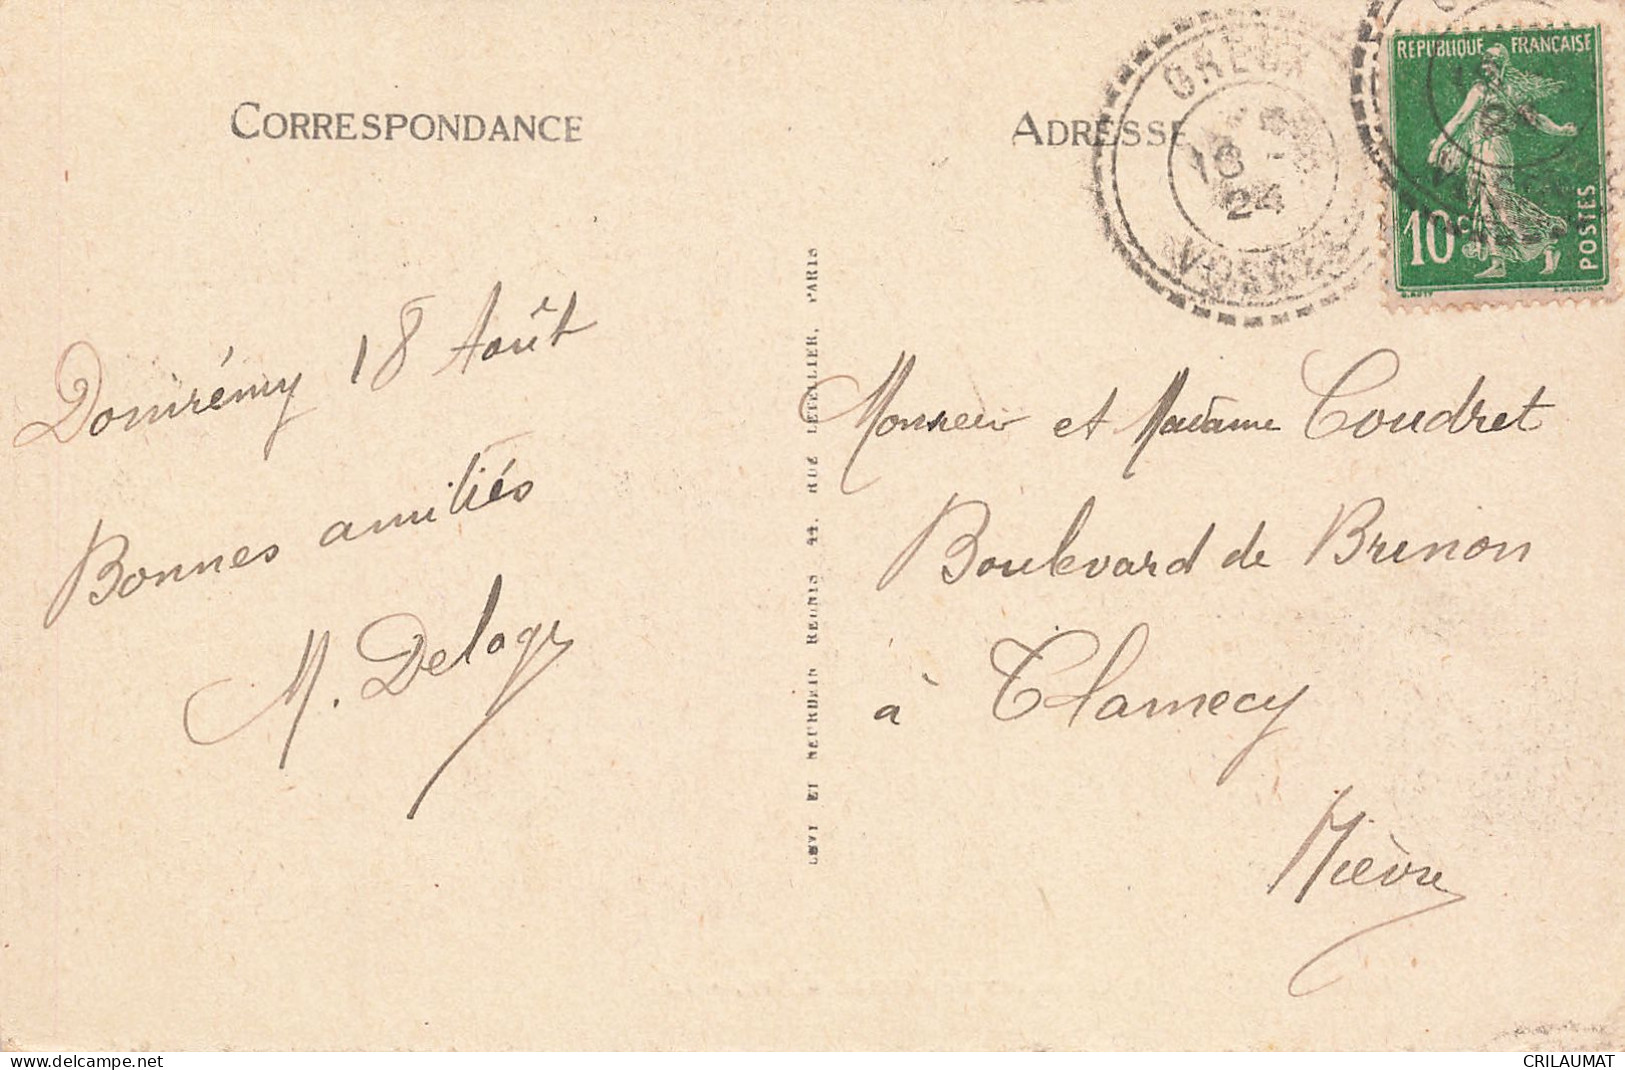 CORRESPONDANCE
Domrémy 18 Août
Bonnes amitiés
M. Delagr
LEVY ET NEURDEIN REUNIS 44, RUE LETELLIER, PARIS
ADRESSE
GREUX
18 - 8
24
VOSGES
REPUBLIQUE FRANÇAISE
10c
POSTES
Monsieur et Madame Coudret
Boulevard de Brinon
à Clamecy
Nièvre
www.delcampe.net
CRILAUMAT